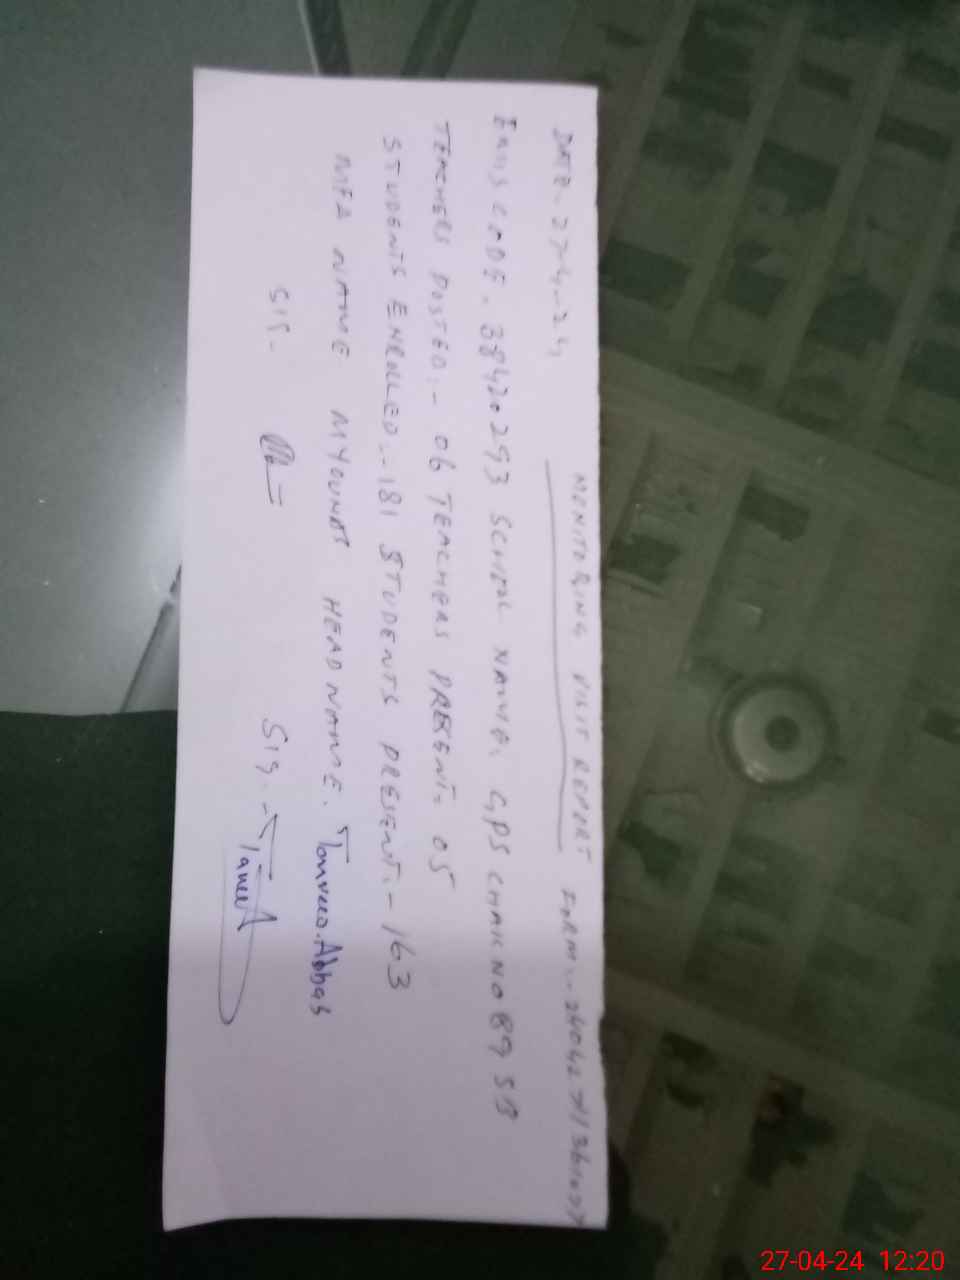 MONITORING VISIT REPORT
DATE. 27-4-24 FORM..
EMIS CODE. 38420293 SCHOOL NAME. GPS CHAK NO 89 SB
TEACHERS POSTED:- 06 TEACHERS PRESENT. 05
STUDENTS ENROLLED.- 181 STUDENTS PRESENT.- 163
MEA NAME HEAD NAME. Tanveer Abbas
SIG- SIG.-
27-04-24 12:20